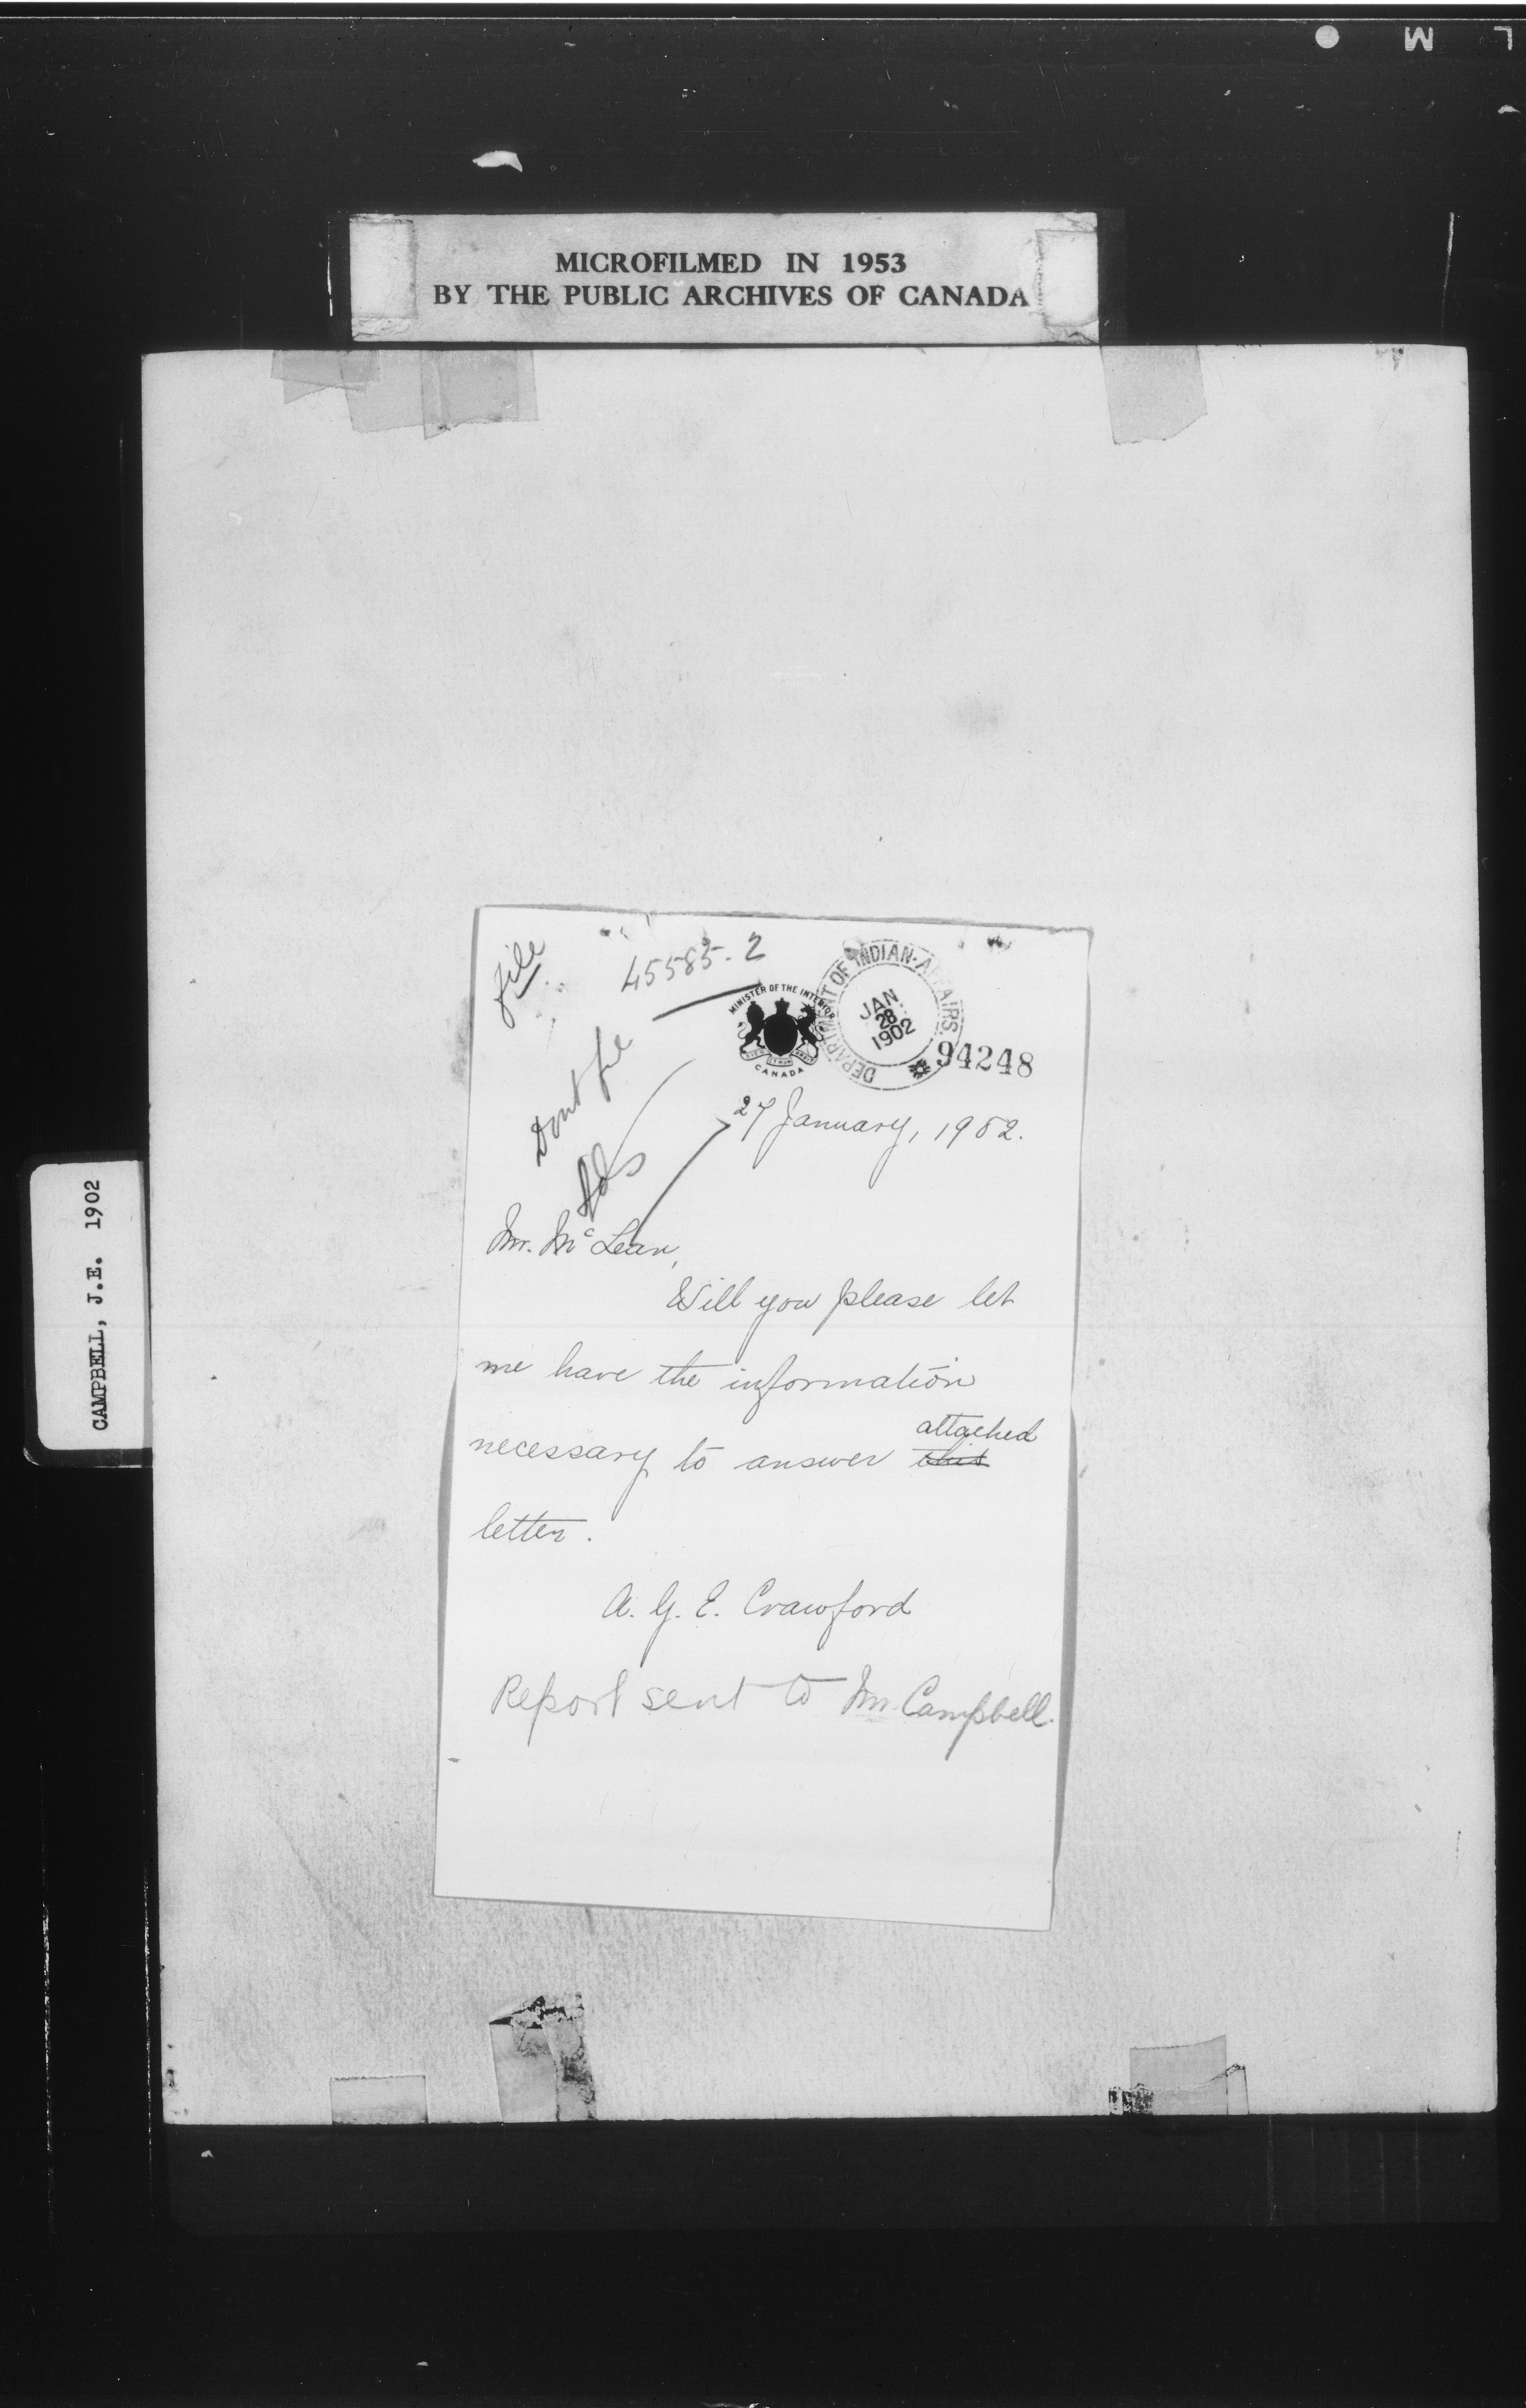 L M
MICROFILMED IN 1953
BY THE PUBLIC ARCHIVES OF CANADA
CAMPBELL, J.E. 1902
file
45585-2
MINISTER OF THE INTERIOR
CANADA
DEPARTMENT OF INDIAN AFFAIRS.
JAN.
28
1902
94248
Dont file
27 January, 1902.
Mr. McLean,
Will you please let
me have the information
necessary to answer this attached
letter.
A. G. E. Crawford
Report sent to Mr Campbell.